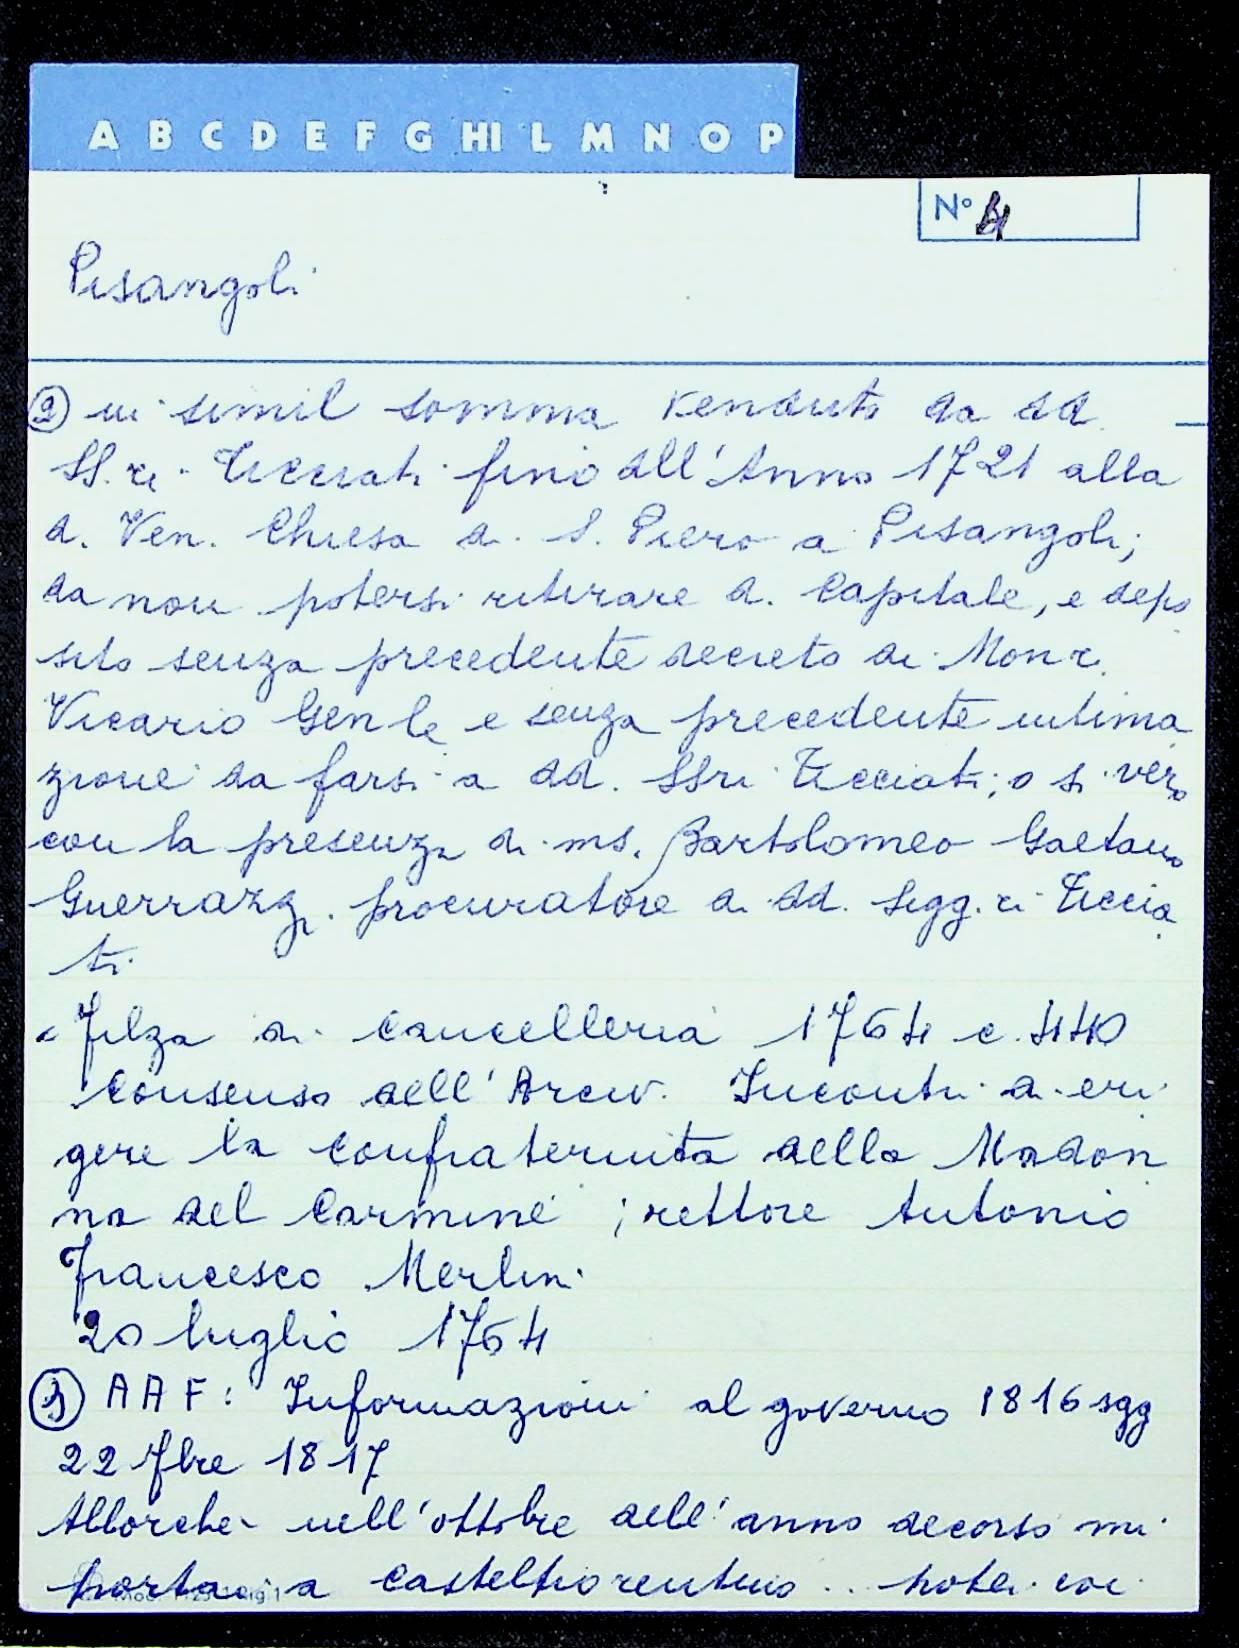 A B C D E F G HI L M N O P
N° 4
Pisangoli
2) in simil somma venduto da dd.
SS.ri Ticciati fino all'Anno 1721 alla
d. Ven. Chiesa di S. Piero a Pisangoli;
da non potersi ritirare d. Capitale, e depo
sito senza precedente decreto di Mon r.
Vicario Gen le e senza precedente intima
zione da farsi a dd. SSri Ticciati; o si vero
con la presenza di ms. Bartolomeo Gaetano
Guerrazzi procuratore di dd. Sigg.ri Ticcia
ti.
Filza di Cancelleria 1764 c. 440
Consenso dell'Arciv. Incontri di eri
gere la confraternita della Madon
na del Carmine; rettore Antonio
Francesco Merlini
20 luglio 1764
3) AAF: Informazioni al governo 1816 sgg
22 7bre 1817
Allorché nell'ottobre dell'anno decorso mi
portai a Castelfiorentino.. potei coi